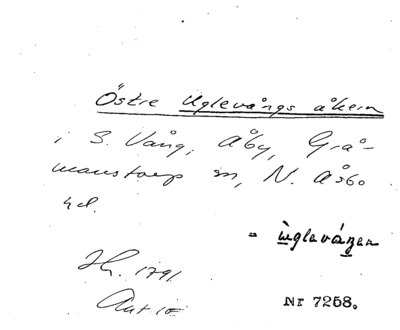 Östre Uglevångs åkern
i S. Vång, Åby, Grå-
manstorps sn, N. Åsbo
hd.
= ùglevángen
Hh. 1791.
Akt 10
Nr 7258.